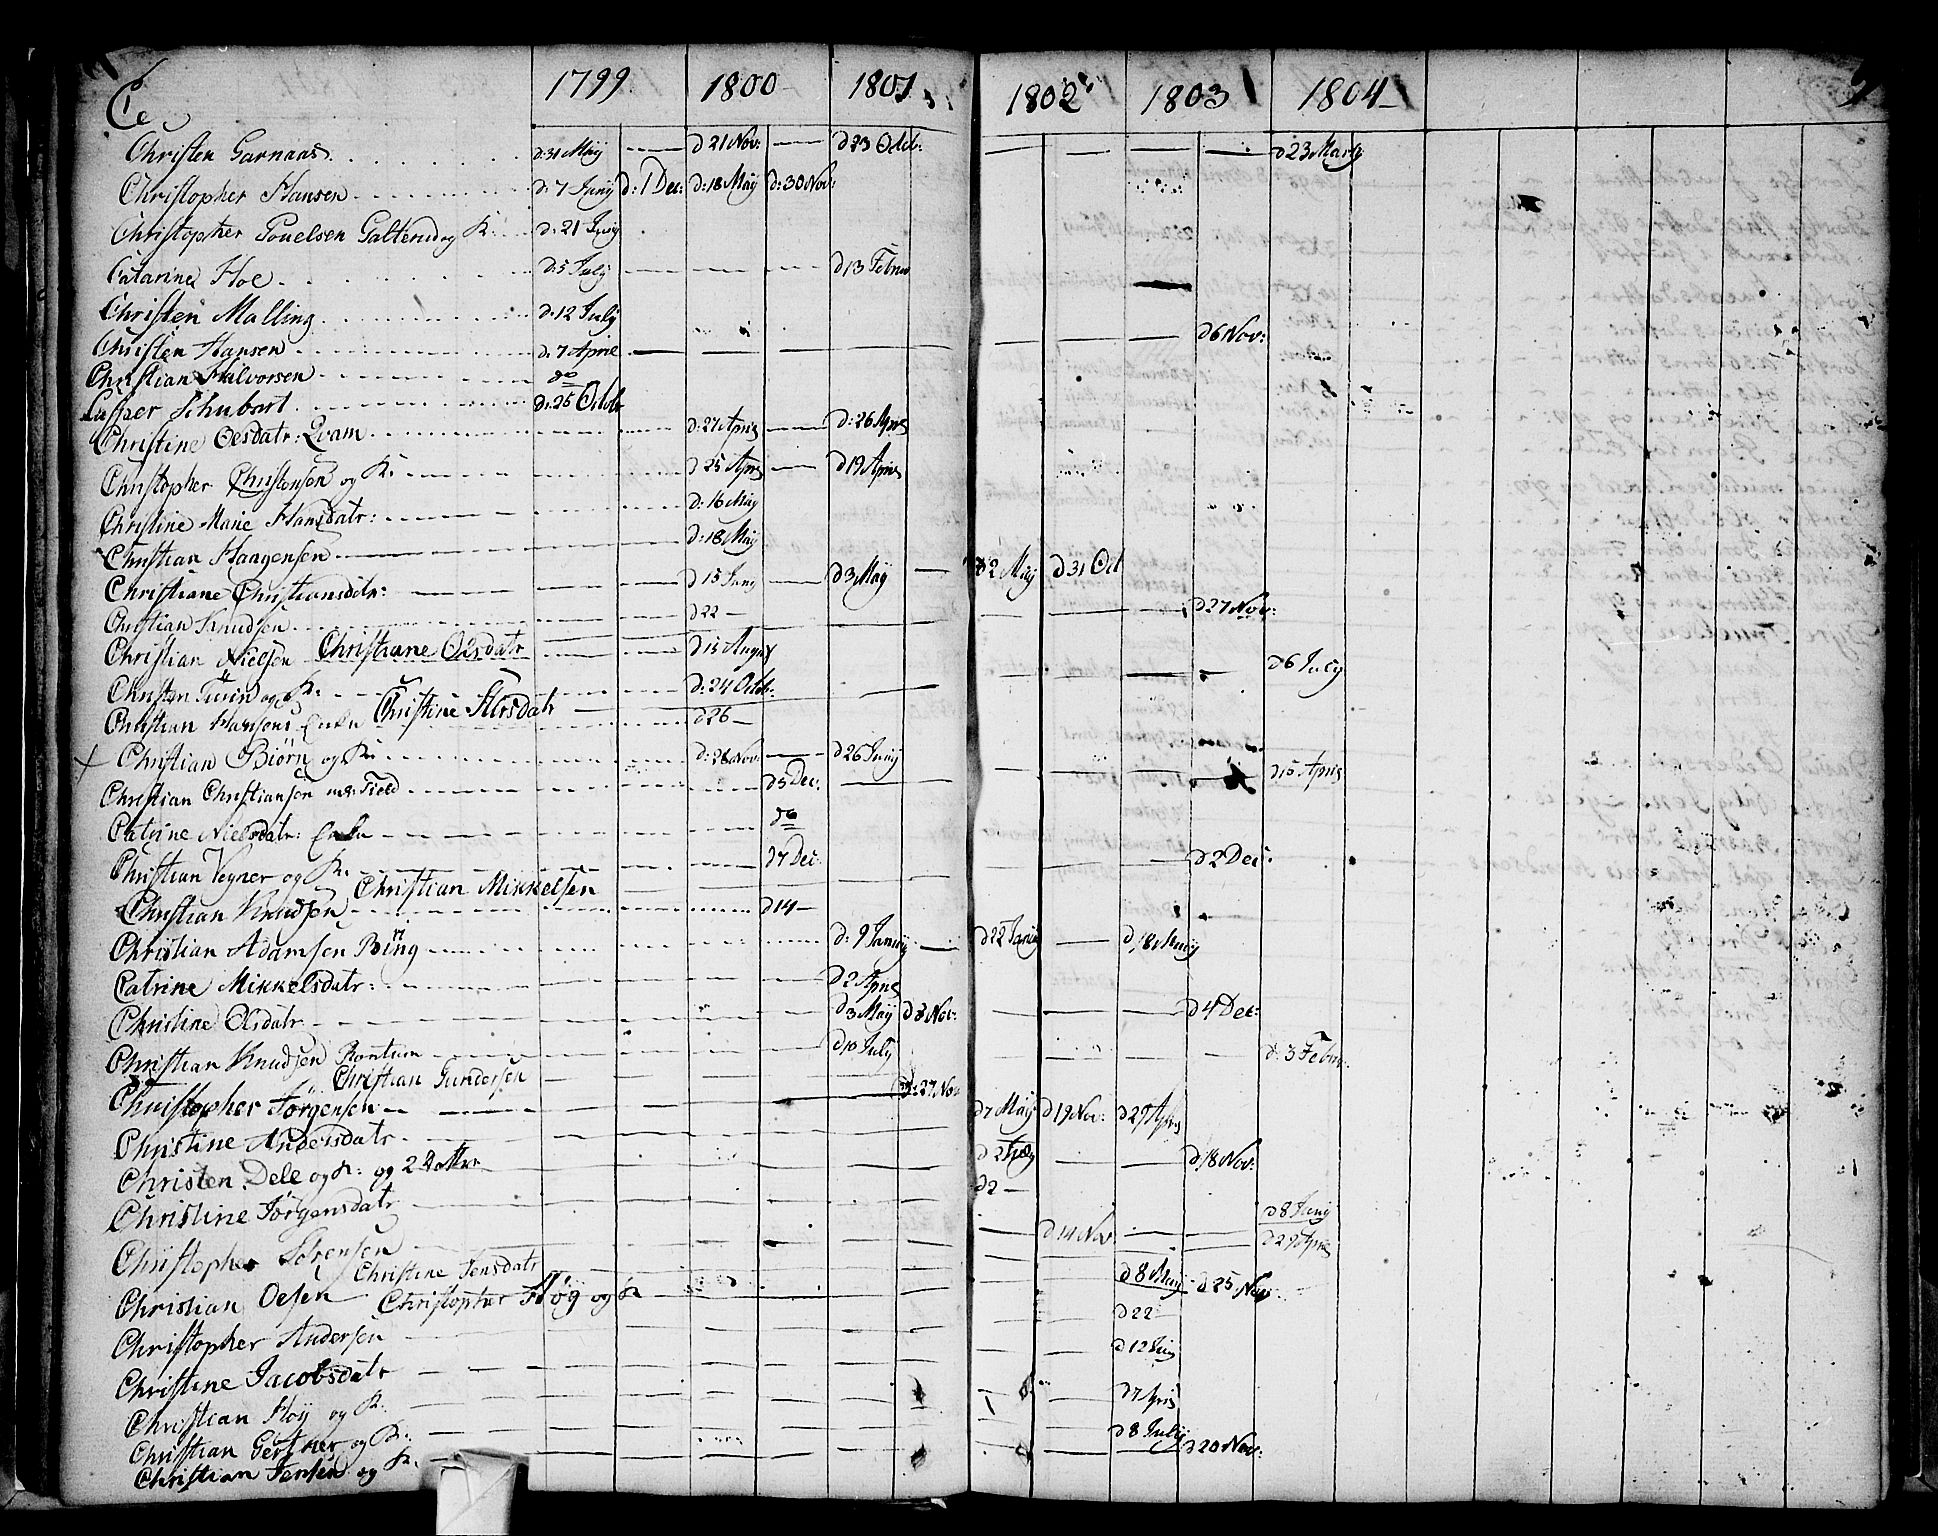 C 1799 1800 1801 1802 1803 1804
Christen Garnaas d: 31 Maij d 21 Nov: d 23 Octb: d 23 Marty
Christopher Hansen d: 7 Junij d: 1 Dec: d: 18 Maij d: 30 Nov:
Christopher Pouelsen Galterud og K: d: 21 Junij
Catarine Hoe d: 5 July d 13 Febru
Christen Malling d: 12 July
Christen Hansen d: 7 April d 6 Nov:
Christian Halvorsen do
Casper Schubart d: 25 Octobr
Christine Olesdatr: Qvam d: 27 April d: 26 April
Christopher Christensen og K: d 25 April d 19 April
Christine Marie Hansdatr: d: 16 Maij
Christian Haagensen d: 18 Maij
Christiane Christiansdatr: d 15 Junij d 3 Maij d 2 Maij d 31 Oct
Christian Knudsen d 22 – d 27 Nov:
Christian Nielsen Christiane Olsdatr d 15 August d 6 July
Christen Tuin og K: d: 24 Octb:
Christian Hansens Enke Christine Larsdatr d 26 –
Christian Biørn og K: d: 28 Nov: d 26 Junij
Christian Christiansen Field d 5 Dec: d 15 April
Catrine Nielsdatr: Enke do
Christian Vegner og K: d 7 Dec: d 2 Dec:
Christian Mikkelsen
Christian Knudsen d 14 –
Christian Adamsen Bing d: 9 Januij d 22 Januij d 18 Maij
Catrine Mikkelsdatr: d 2 April
Christine Olsdatr d 3 Maij d 8 Nov: d 4 Dec:
Christian Knudsen d 10 July d: 3 Febru:
Christian Gundersen
Christopher Jørgensen d: 27 Nov
Christine Andersdatr d 7 Maij d 19 Nov: d 29 April
Christen Dele og K: og 2 Dottre d 2 d 18 Nov:
Christine Jørgensdatr d 2 – d 8 Junij
Christopher Sørensen d 14 Nov d 29 April
Christine Jensdatr
Christian Olsen Christopher Høyg og K d 8 Maij d 25 Nov:
Christopher Andersen d 22
Christine Jacobsdatr d 12 Junij
Christian Høij og K: d 7 April
Christian Gertner og K: d 8 July d 20 Nov:
Christian Jensen og K: